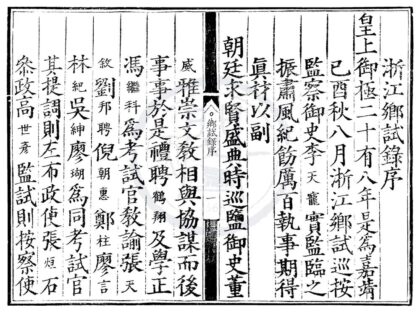 浙江鄉試錄序
皇上御極二十有八年是為嘉靖
己酉秋八月浙江鄉試巡按
監察御史李天寵實監臨之
振肅風紀飭厲百執事期得
真材以副
朝廷求賢盛典時巡鹽御史董
鄉試錄序
威雅崇文教相與協謀而後
事事於是禮聘鶴翔及學正
馮繼科為考試官教諭張天
敘劉邦聘倪朝惠鄭柱廖言
林紀吳紳廖瑚為同考試官
其提調則左布政使張烜石
叅政高世彥監試則按察使